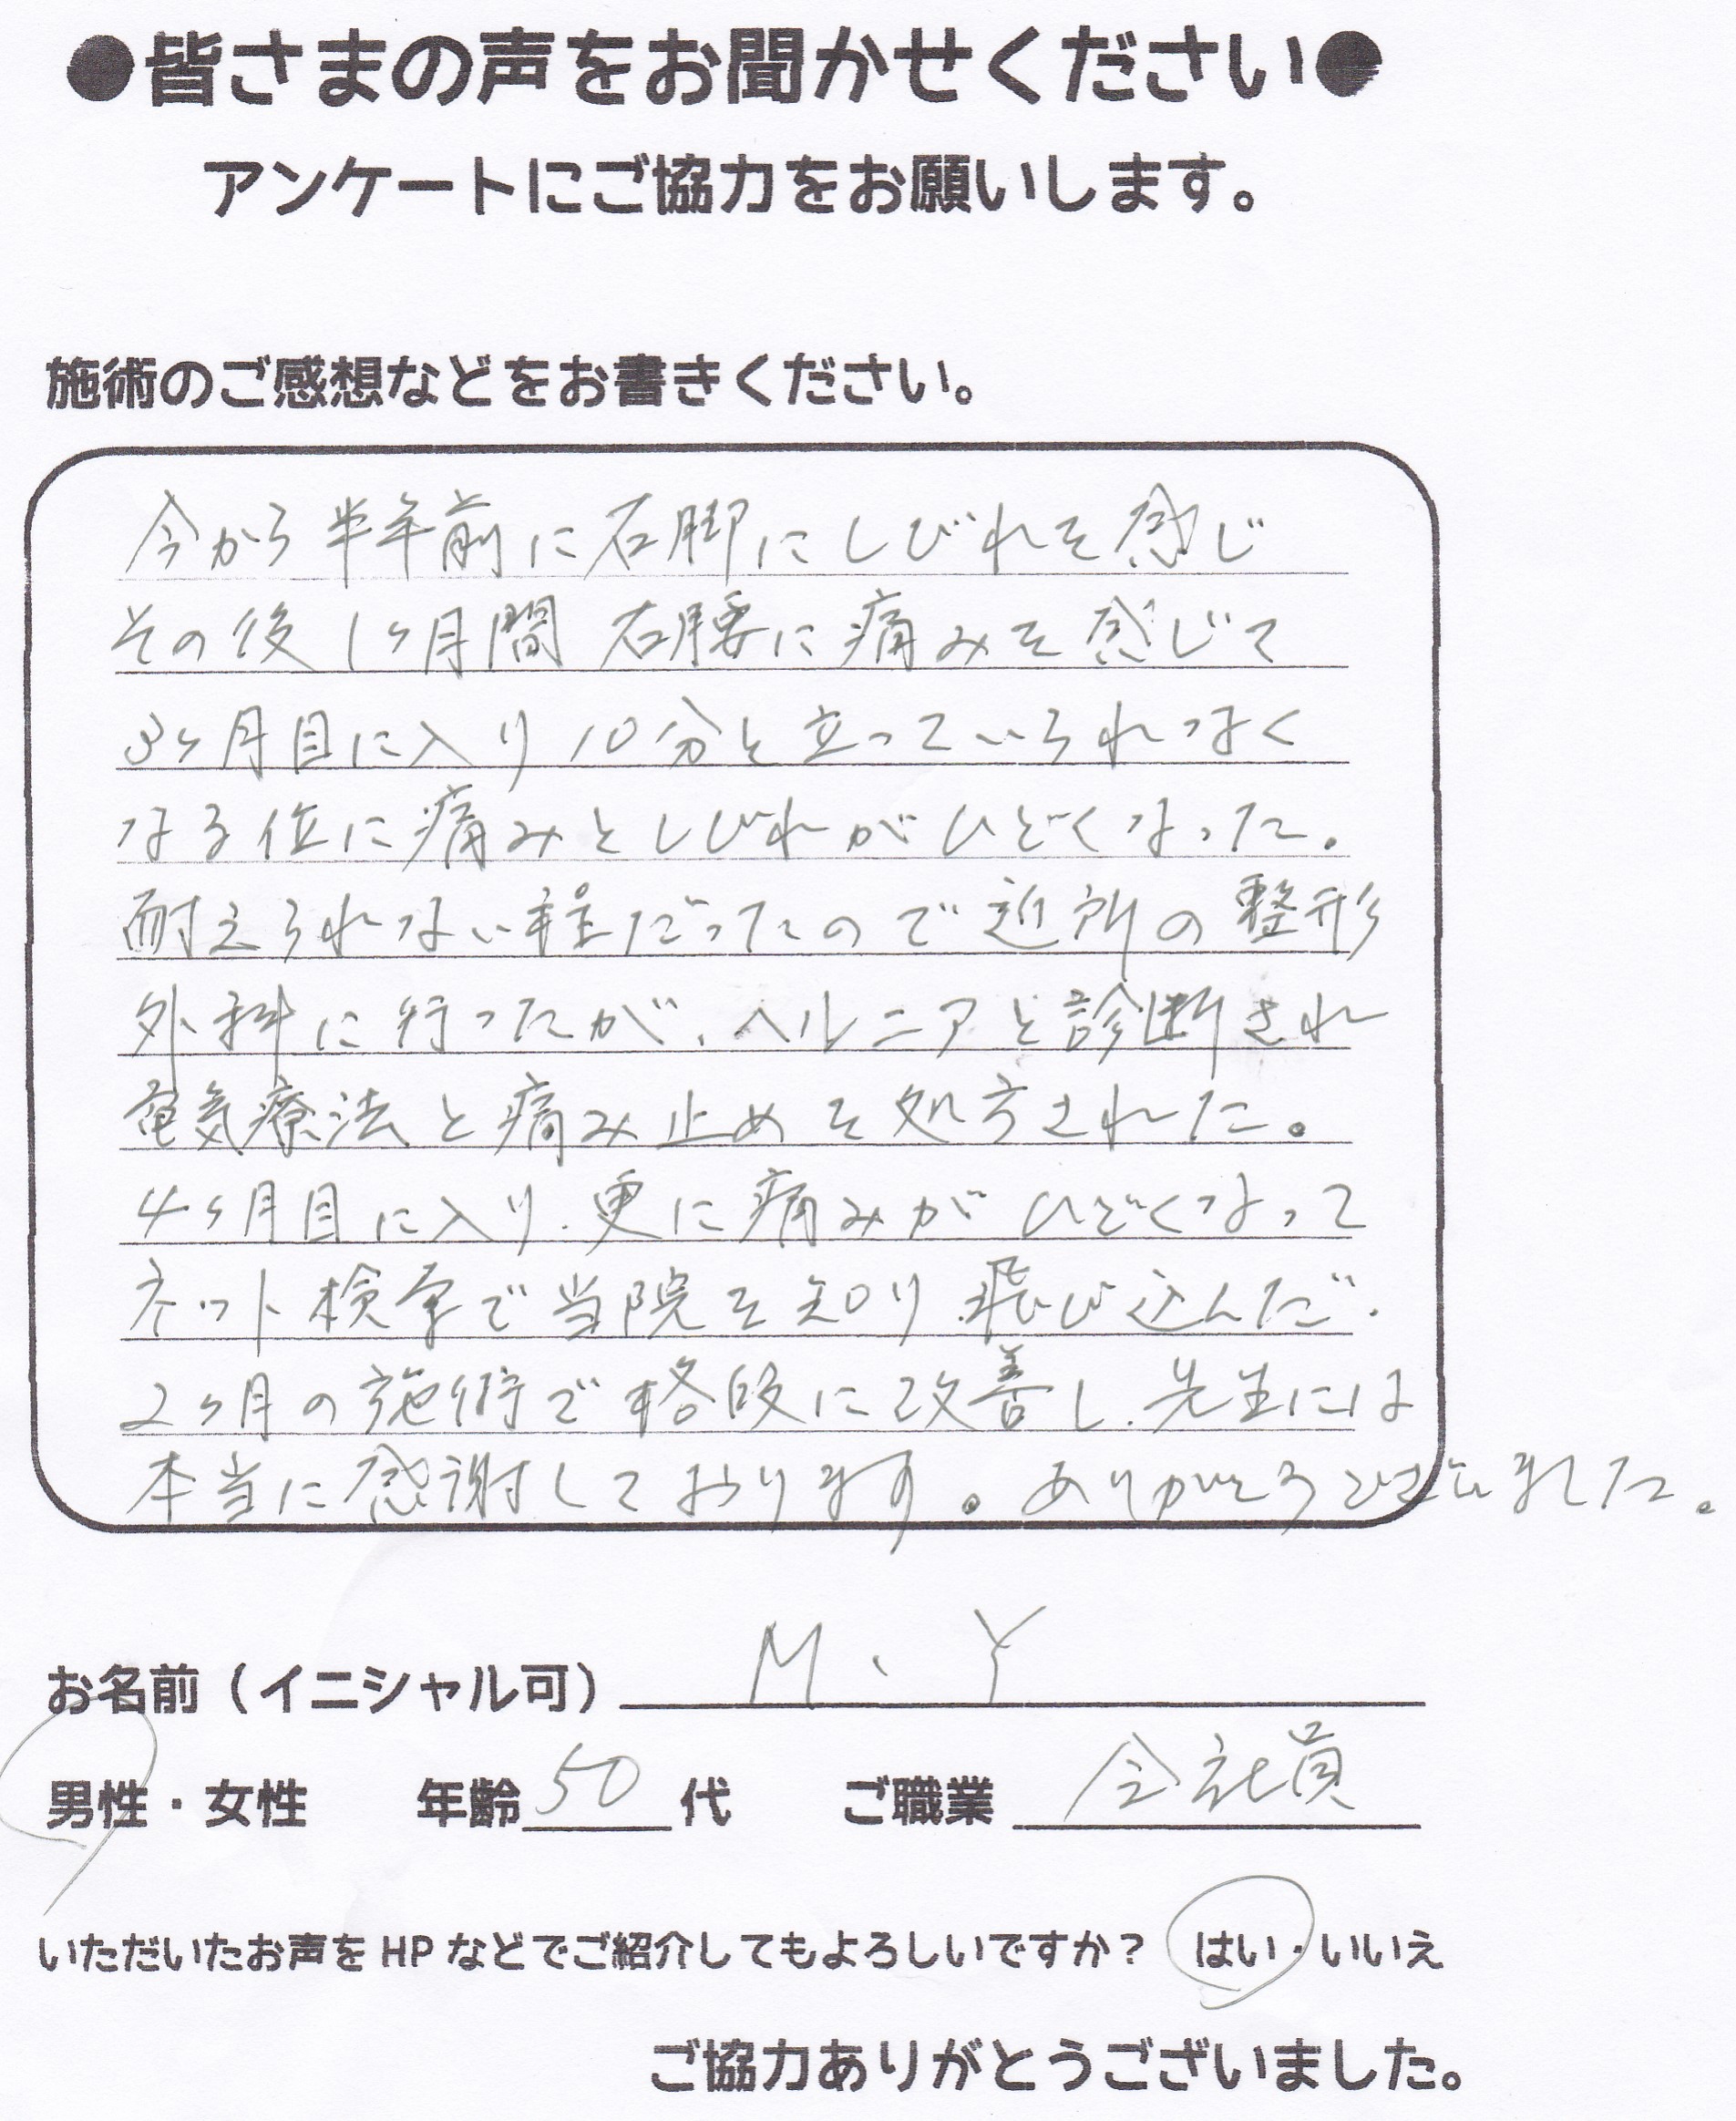 ●皆さまの声をお聞かせください●
アンケートにご協力をお願いします。
施術のご感想などをお書きください。
今から半年前に右脚にしびれを感じ
その後1ヶ月間 右腰に痛みを感じて
3ヶ月目に入り10分と立っていられなく
なる位に痛みとしびれがひどくなった。
耐えられない程だったので近所の整形
外科に行ったが、ヘルニアと診断され
電気療法と痛み止めを処方された。
4ヶ月目に入り、更に痛みがひどくなって
ネット検索で当院を知り飛び込んだ。
2ヶ月の施術で格段に改善し、先生には
本当に感謝しております。ありがとうございました。
お名前（イニシャル可） M、Y
男性・女性 年齢 50 代 ご職業 会社員
いただいたお声をHPなどでご紹介してもよろしいですか？ はい・いいえ
ご協力ありがとうございました。